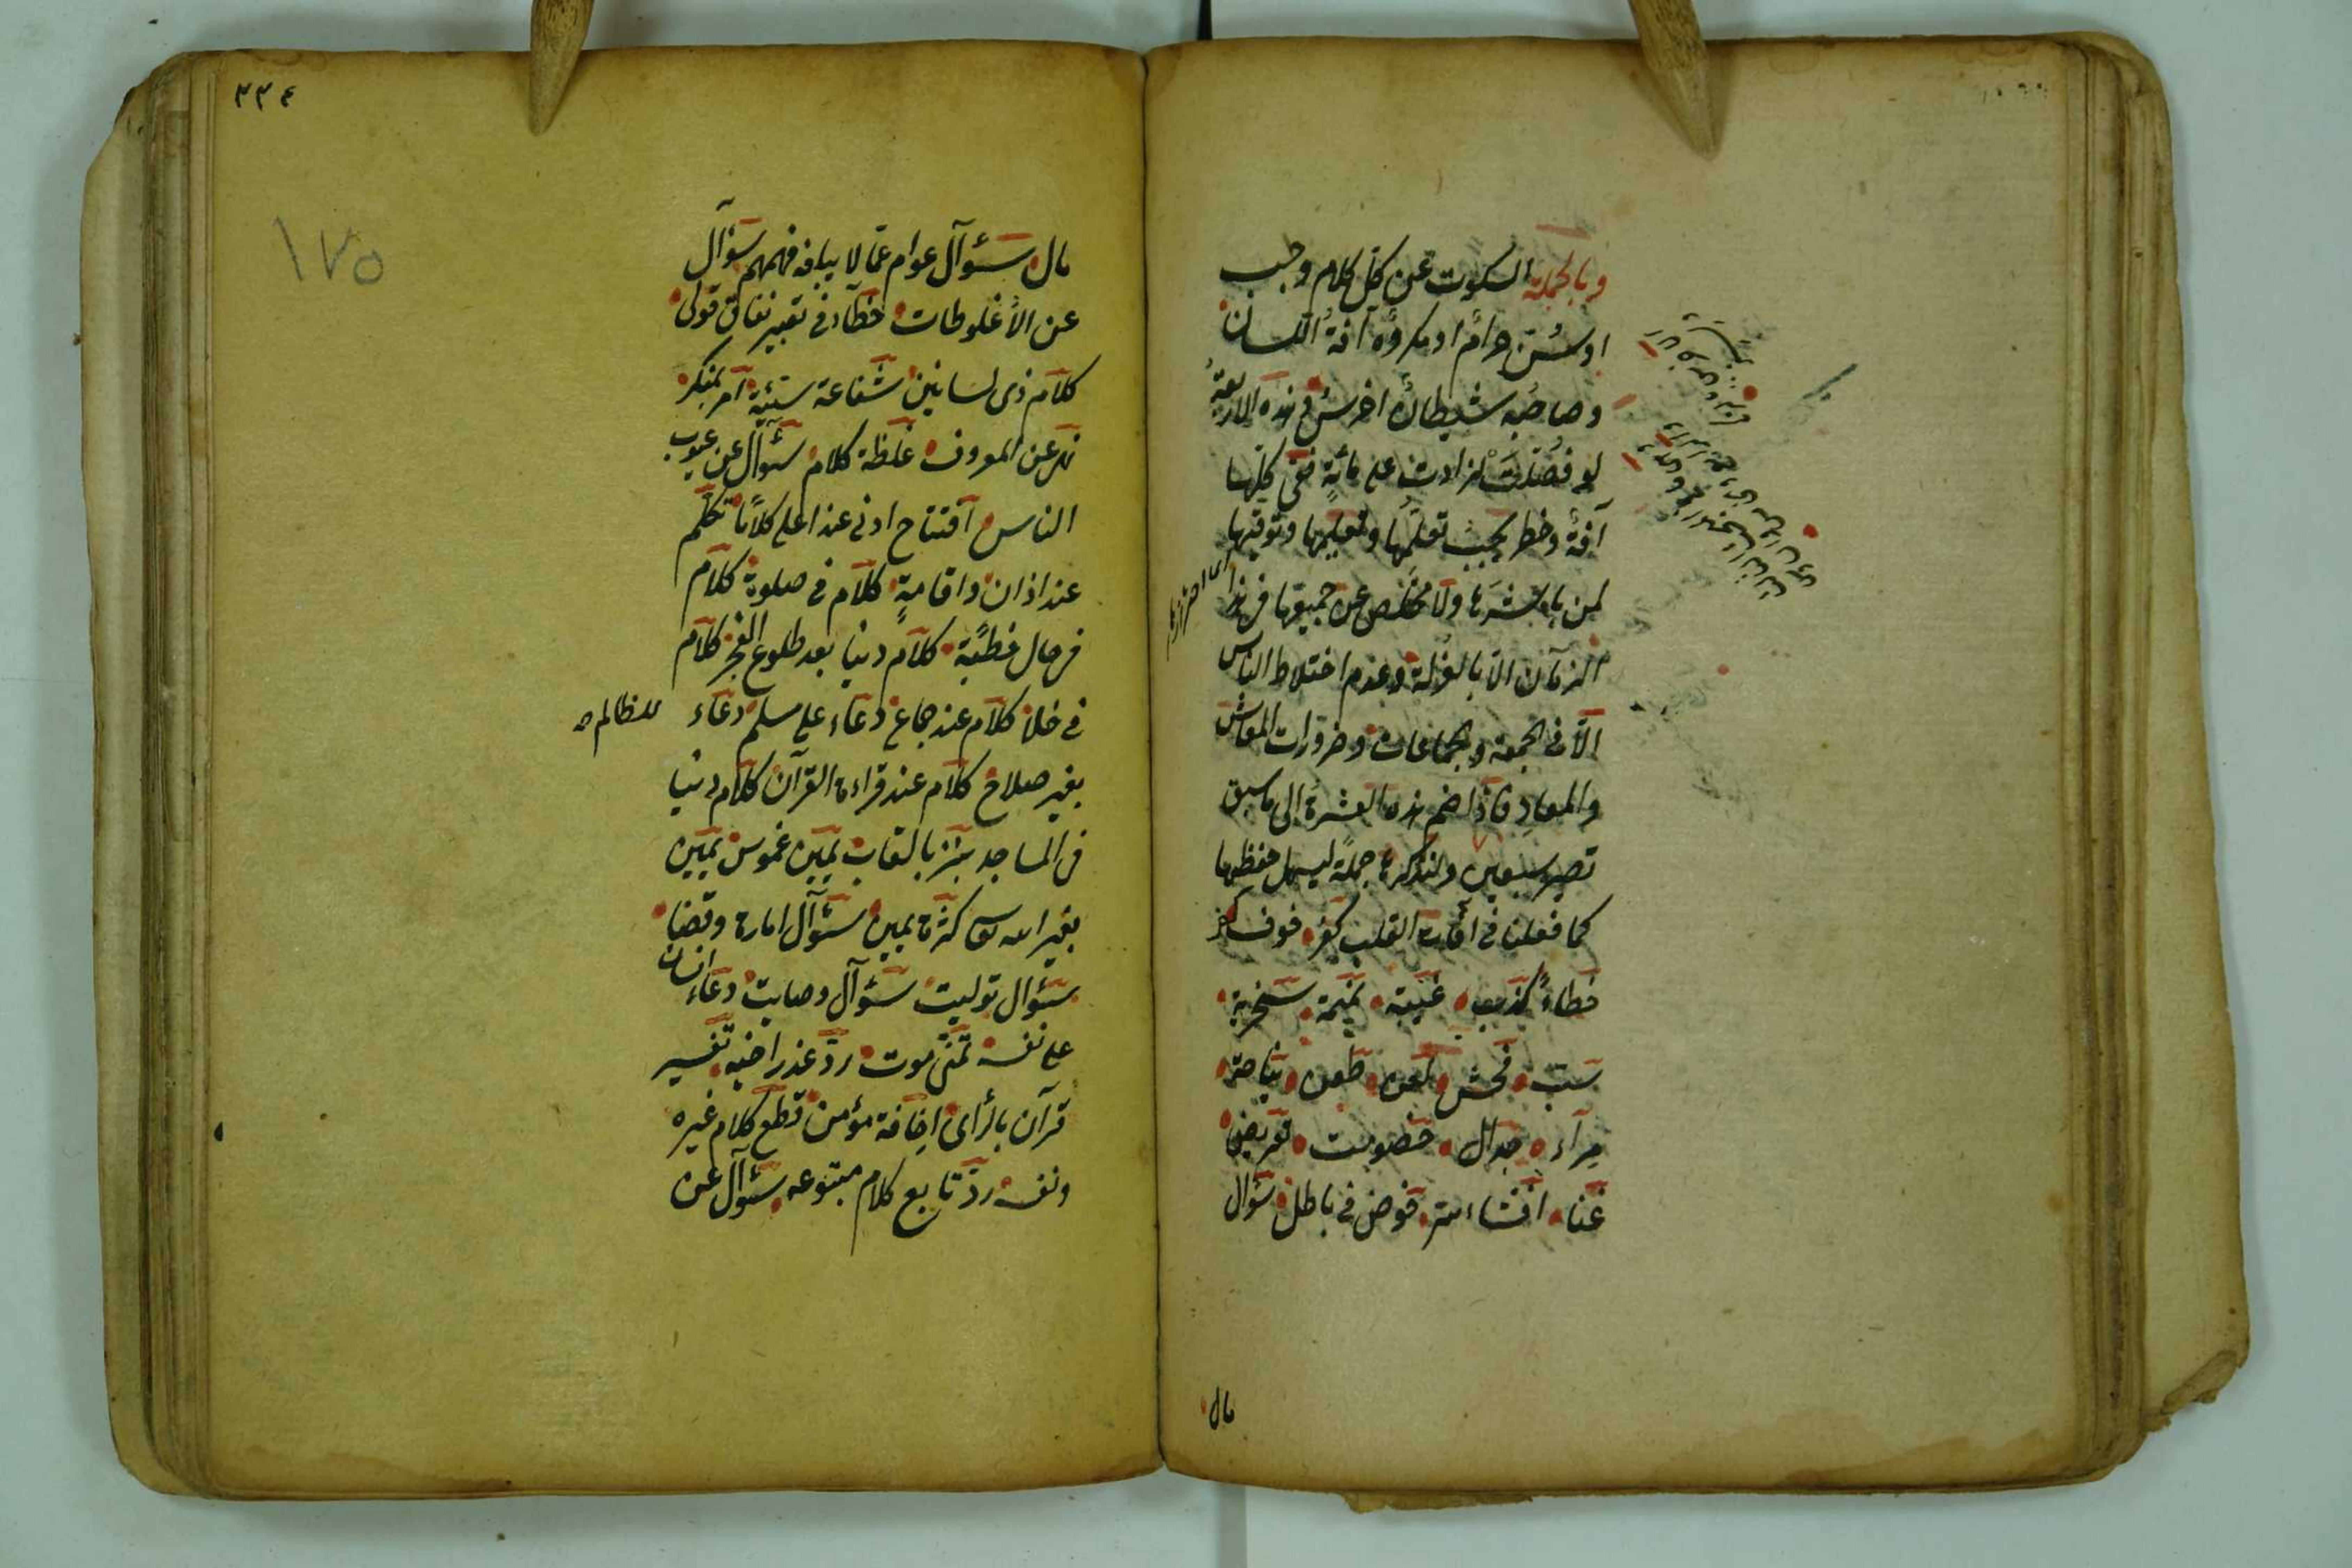 وبالجملة السكوت عن كل كلام وجب
او سُنّ حرامٌ او مكروهٌ آفةُ اللسان
وصاحبُه شيطانٌ اخرسُ فى هذه الاربعةِ
لو فُصّلت لزادت على مائةٍ ففى كلّها
آفةٌ وخطر يجب تعلّمُها وتعليمها وتوقيها
لمن باشرَها ولا مخلص عن جميعها فى هذا
الزمان الاّ بالعزلة وعدم اختلاط الناس
الاّ فى الجمعة والجماعات وضرورات المعاش
والمعادِ فاذا ضم هذه العشرة الى ما سبق
تصير سبعين ولنذكرها جملةً ليسهل حفظها
كما فعلنا فى آفات القلب كفر خوف كفر
خطاءً كذب غيبة نميمة سخرية
سبّ فحش لعن طعن نياحة
مِراء جدال خصومت تعريض
غنا افشاء سرّ خوض فى باطل سؤال
مال
٣٣٤
١٧٥
مال سؤال عوام عمّا لا يبلغه فهمهم سؤال
عن الأغلوطات خطأ فى تعبير نفاق قولى
كلام ذى لسانين شفاعة سيّئة امر بمنكر
نهى عن المعروف غلظة كلام سؤال عن عيوب
الناس افتتاح ادنى عند اعلى كلاما تكلّم
عند اذان واقامةٍ كلام فى صلوة كلام
فى حال خطبة كلام دنيا بعد طلوع الفجر كلام
فى خلا كلام عند جماع دعاء على مسلم دعاء
للظالم صح
بغير صلاح كلام عند قراءة القرآن كلام دنيا
فى المساجد نبز بالقاب يمين غموس يمين
بغير الله تعا كثرة يمين سؤال امارة وقضا
سؤال توليت سؤال وصايت دعاء انسان
على نفسه تمنّى موت ردّ عذر اخيه تفسير
قرآن بالرأى اخافة مؤمن قطع كلام غيره
ونفسه ردّ تابع كلام متبوعه سؤال عن